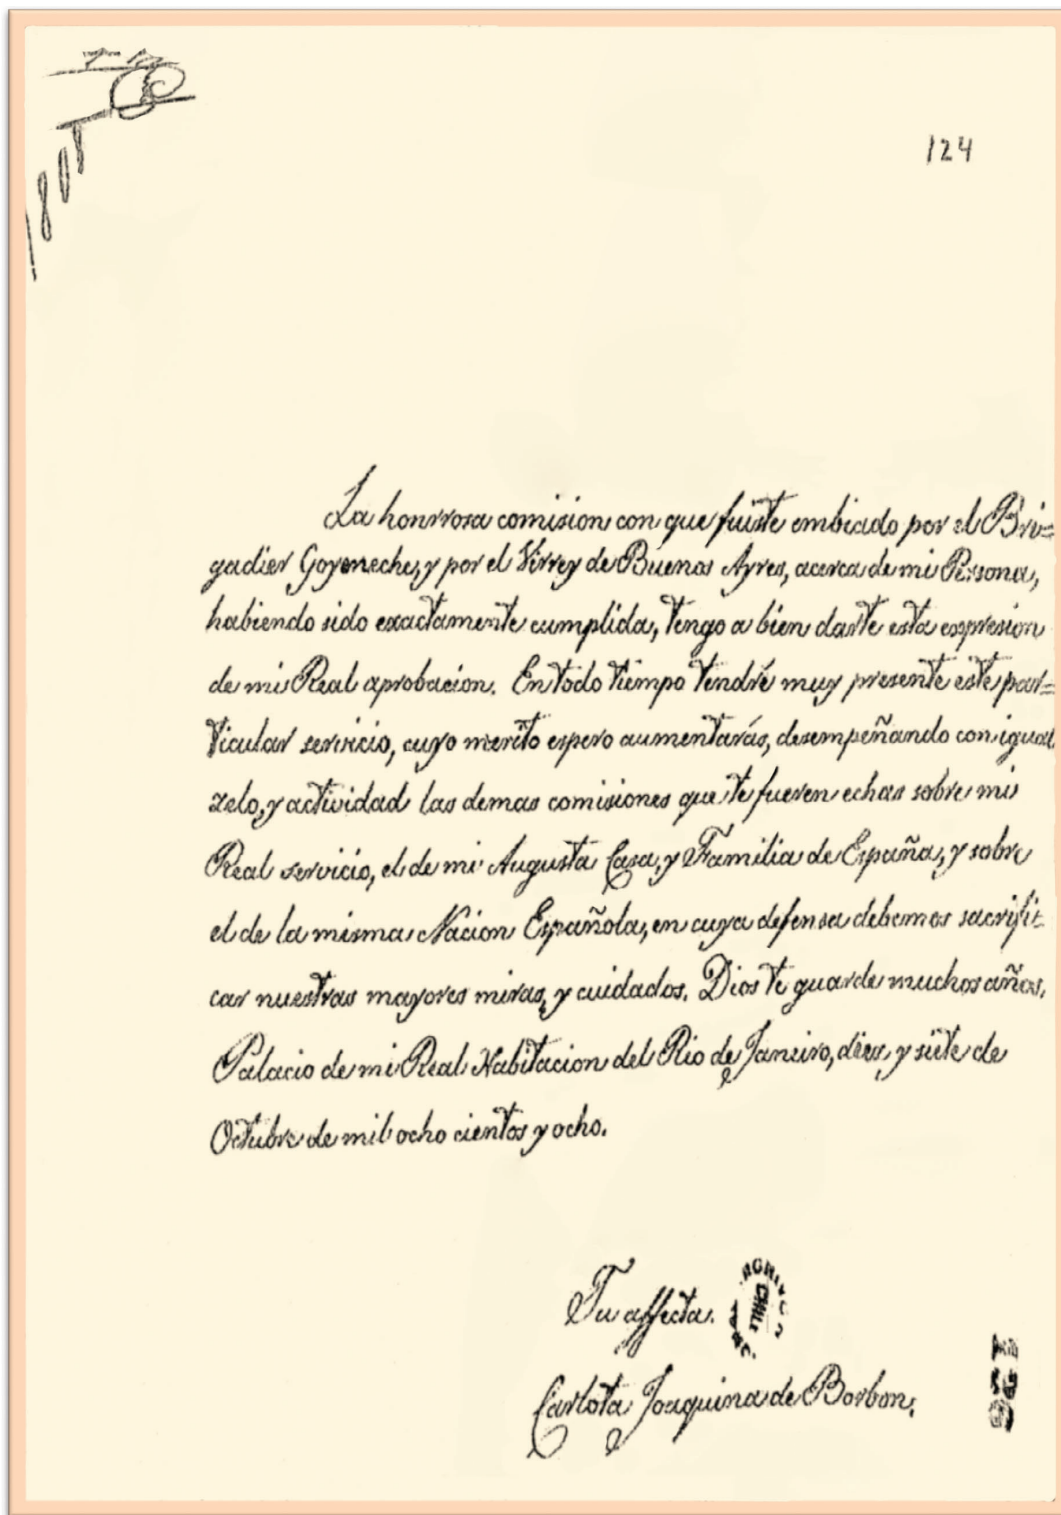 1808
124
La honrrosa comision con que fuiste embiado por el Bri=
gadier Goyeneche, y por el Virrey de Buenos Ayres, acerca de mi Persona,
habiendo sido exactamente cumplida, tengo a bien darte esta expresion
de mi Real aprobacion. En todo tiempo tendré muy presente este par=
ticular servicio, cuyo merito espero aumentarás, desempeñando con igual
zelo, y actividad las demas comisiones que te fueren echas sobre mi
Real servicio, el de mi Augusta Casa, y Familia de España, y sobre
el de la misma Nacion Española, en cuya defensa debemos sacrifi-
car nuestras mayores miras, y cuidados. Dios te guarde muchos años.
Palacio de mi Real Habitacion del Rio de Janeiro, dies, y siete de
Octubre de mil ocho cientos y ocho.
Tu affecta.
CHILE
Carlota Joaquina de Borbon.